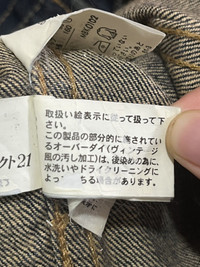 取扱い絵表示に従って扱って下
さい。
この製品の部分的に施されてい
るオーバーダイ(ヴィンテージ
風の汚し加工)は、後染めの為に、
水洗いやドライクリーニングに
よっ ちる場合があります。
クト21